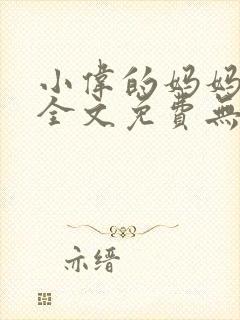 小偉的媽媽
全文免費無
亦縉